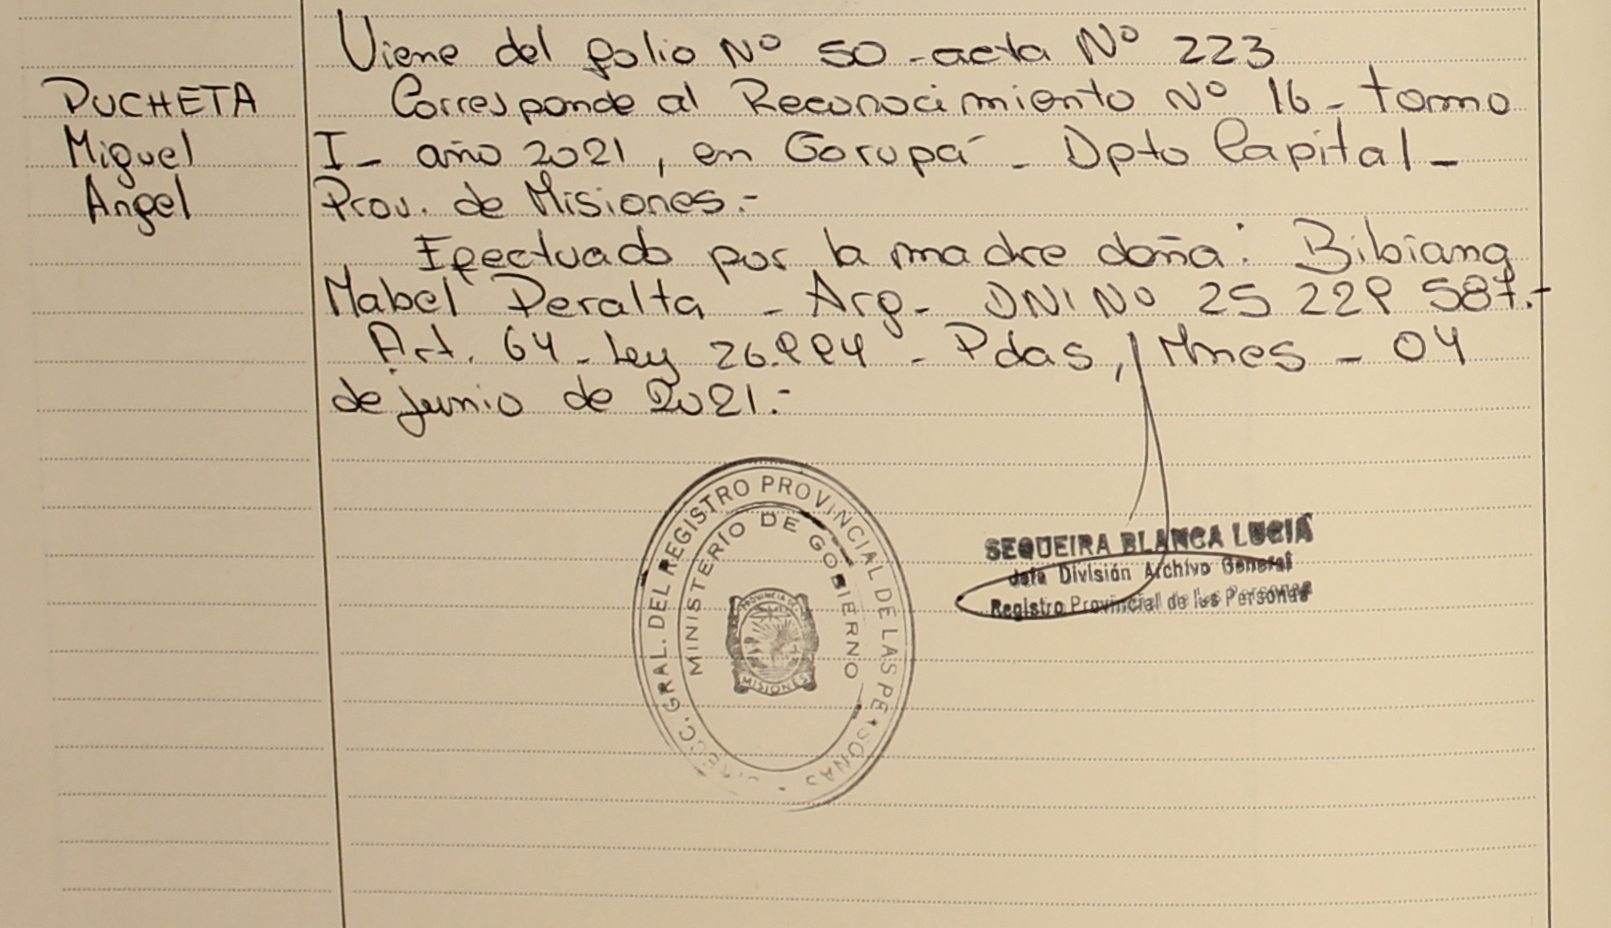 Viene del folio Nº 50 - acta Nº 223
PUCHETA
Miguel
Angel
Corresponde al Reconocimiento Nº 16 - tomo
I - año 2021, en Garupá - Dpto Capital -
Prov. de Misiones.-
Efectuado por la madre doña: Bibiana
Mabel Peralta - Arg - DNI Nº 25 229 587.-
Art. 64 - Ley 26.994 - Pdas, Mnes - 04
de junio de 2021.-
GRAL. DEL REGISTRO PROVINCIAL DE LAS PERSONAS
MINISTERIO DE GOBIERNO
PROVINCIA DE
MISIONES
SEQUEIRA BLANCA LUCIA
Jefa División Archivo General
Registro Provincial de las Personas